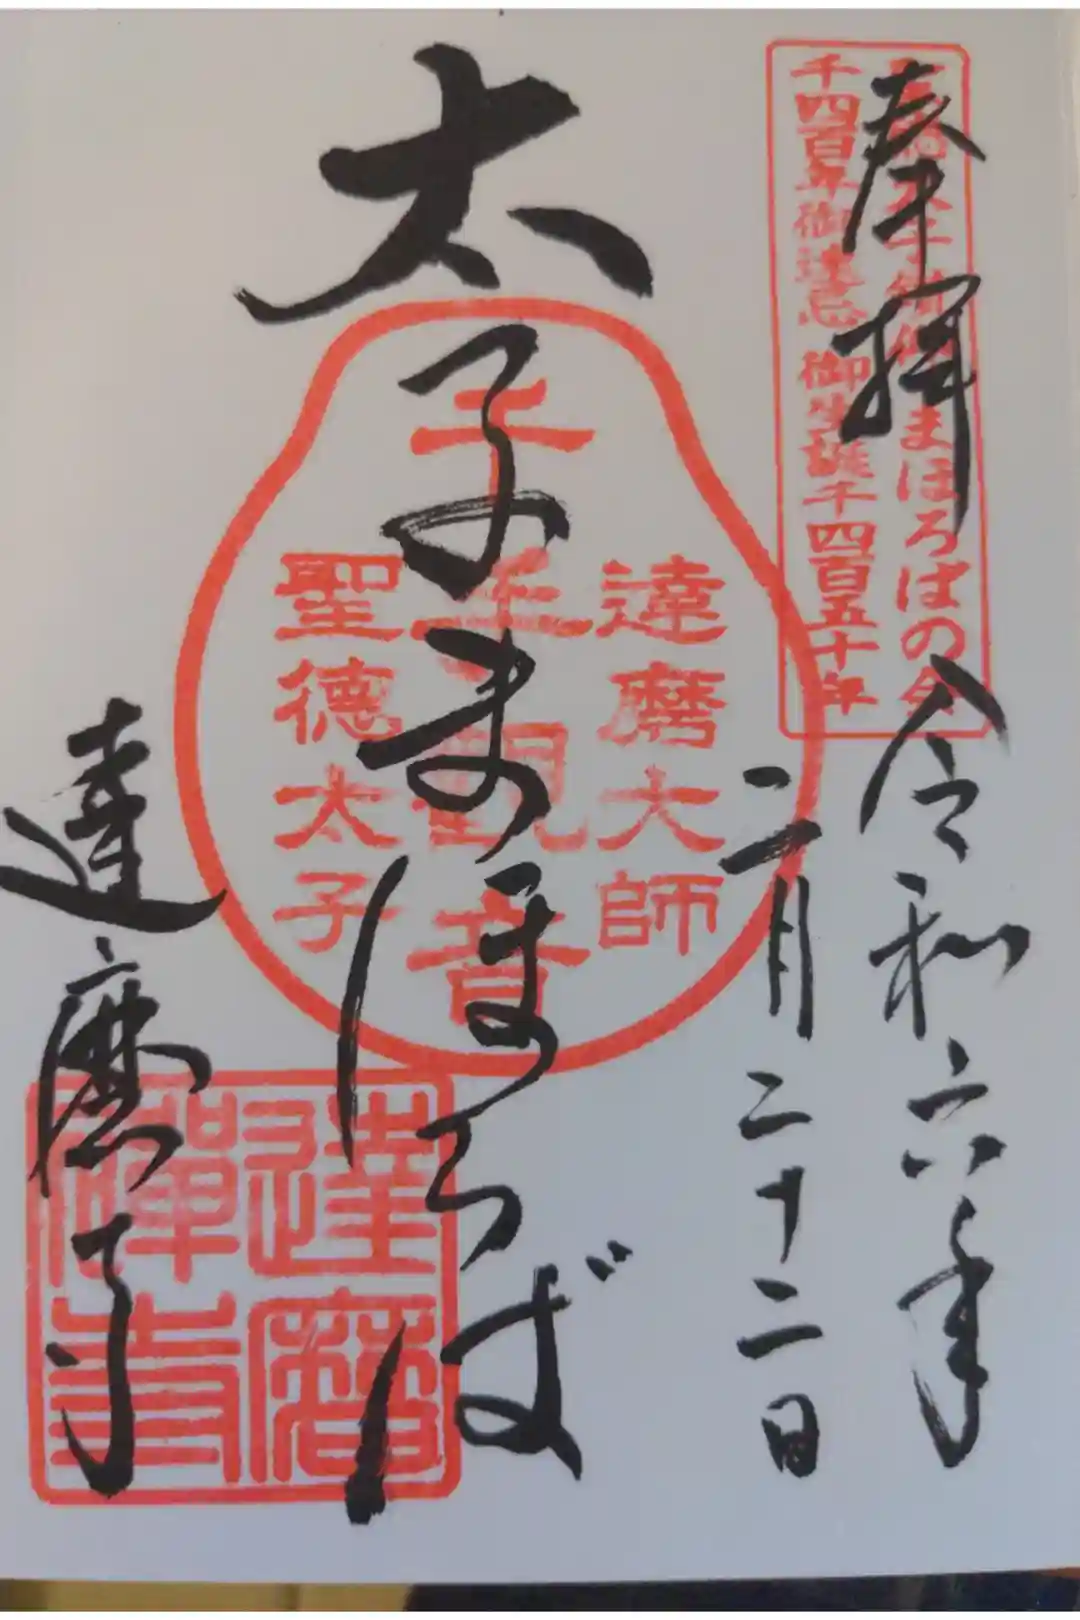 奉拝
太子御遠忌まほろばの会
千四百年御遠忌 御生誕千四百五十年
令和六年
二月二十二日
達磨大師
千手観音
聖徳太子
太子まほろば
達磨寺
達磨
禅寺